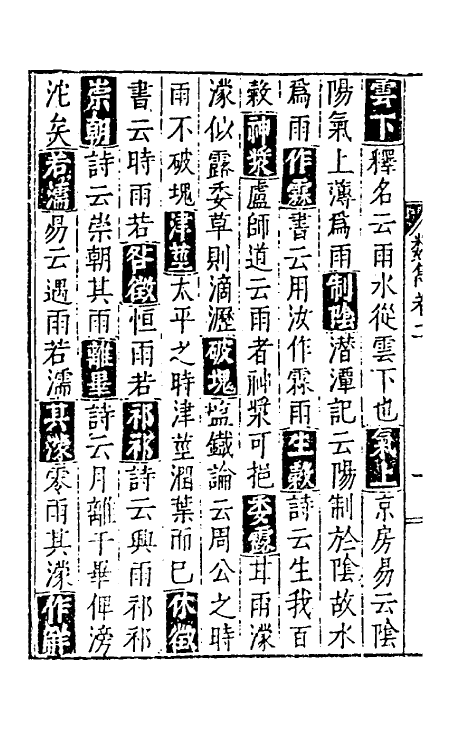 雲下釋名云雨水從雲下也氣上京房易云陰
陽氣上薄為雨制陰潛潭記云陽制於陰故水
為雨作霖書云用汝作霖雨生穀詩云生我百
穀神漿盧師道云雨者神漿可挹委露甘雨濛
濛似露委草則滴瀝破塊塩鐵論云周公之時
雨不破塊津莖太平之時津莖潤葉而已休徵
書云時雨若咎徵恒雨若祁祁詩云興雨祁祁
崇朝詩云崇朝其雨離畢詩云月離于畢俾滂
沱矣若濡易云遇雨若濡其濛零雨其濛作解
卷二